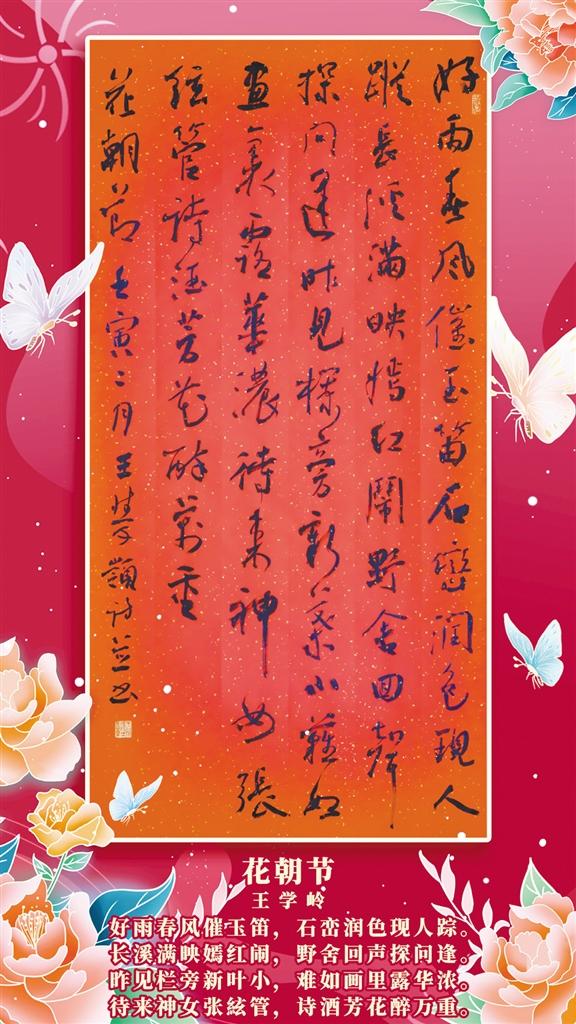 好雨春风催玉笛石峦润色現人
蹤長溪滿映嫣红鬧野舍回聲
探问逢昨見欄旁新葉小難如
畫裏露華濃待来神女張
絃管诗酒芳花醉萬重
花朝節 壬寅二月王学嶺诗並书
花朝节
王学岭
好雨春风催玉笛，石峦润色现人踪。
长溪满映嫣红闹，野舍回声探问逢。
昨见栏旁新叶小，难如画里露华浓。
待来神女张絃管，诗酒芳花醉万重。